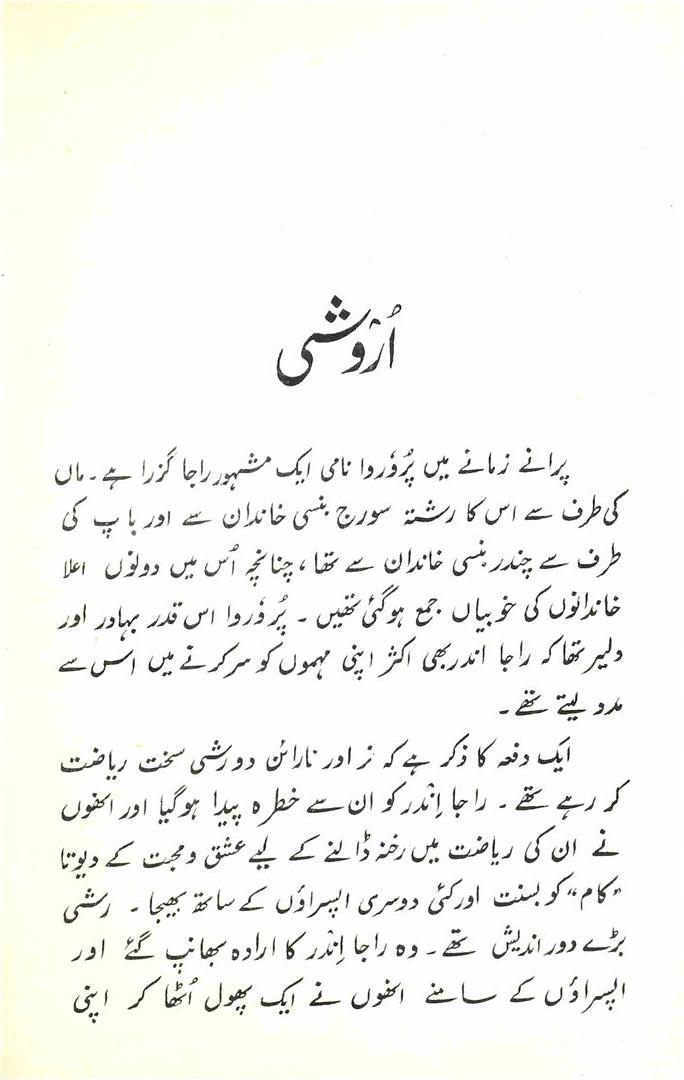 اُرْوَشی
پرانے زمانے میں پُروَروا نامی ایک مشہور راجا گزرا ہے۔ ماں
کی طرف سے اس کا رشتہ سورج بنسی خاندان سے اور باپ کی
طرف سے چندر بنسی خاندان سے تھا، چنانچہ اُس میں دونوں اعلا
خاندانوں کی خوبیاں جمع ہوگئی تھیں۔ پُروَروا اس قدر بہادر اور
دلیر تھا کہ راجا اندر بھی اکثر اپنی مہموں کو سر کرنے میں اس سے
مدد لیتے تھے۔
ایک دفعہ کا ذکر ہے کہ نر اور نارائن دو رشی سخت ریاضت
کر رہے تھے۔ راجا اِنْدر کو ان سے خطرہ پیدا ہوگیا اور انھوں
نے ان کی ریاضت میں رخنہ ڈالنے کے لیے عشق و محبت کے دیوتا
”کام“ کو بسنت اور کئی دوسری اپسراؤں کے ساتھ بھیجا۔ رشی
بڑے دور اندیش تھے۔ وہ راجا اِنْدر کا ارادہ بھانپ گئے اور
اپسراؤں کے سامنے انھوں نے ایک پھول اُٹھا کر اپنی